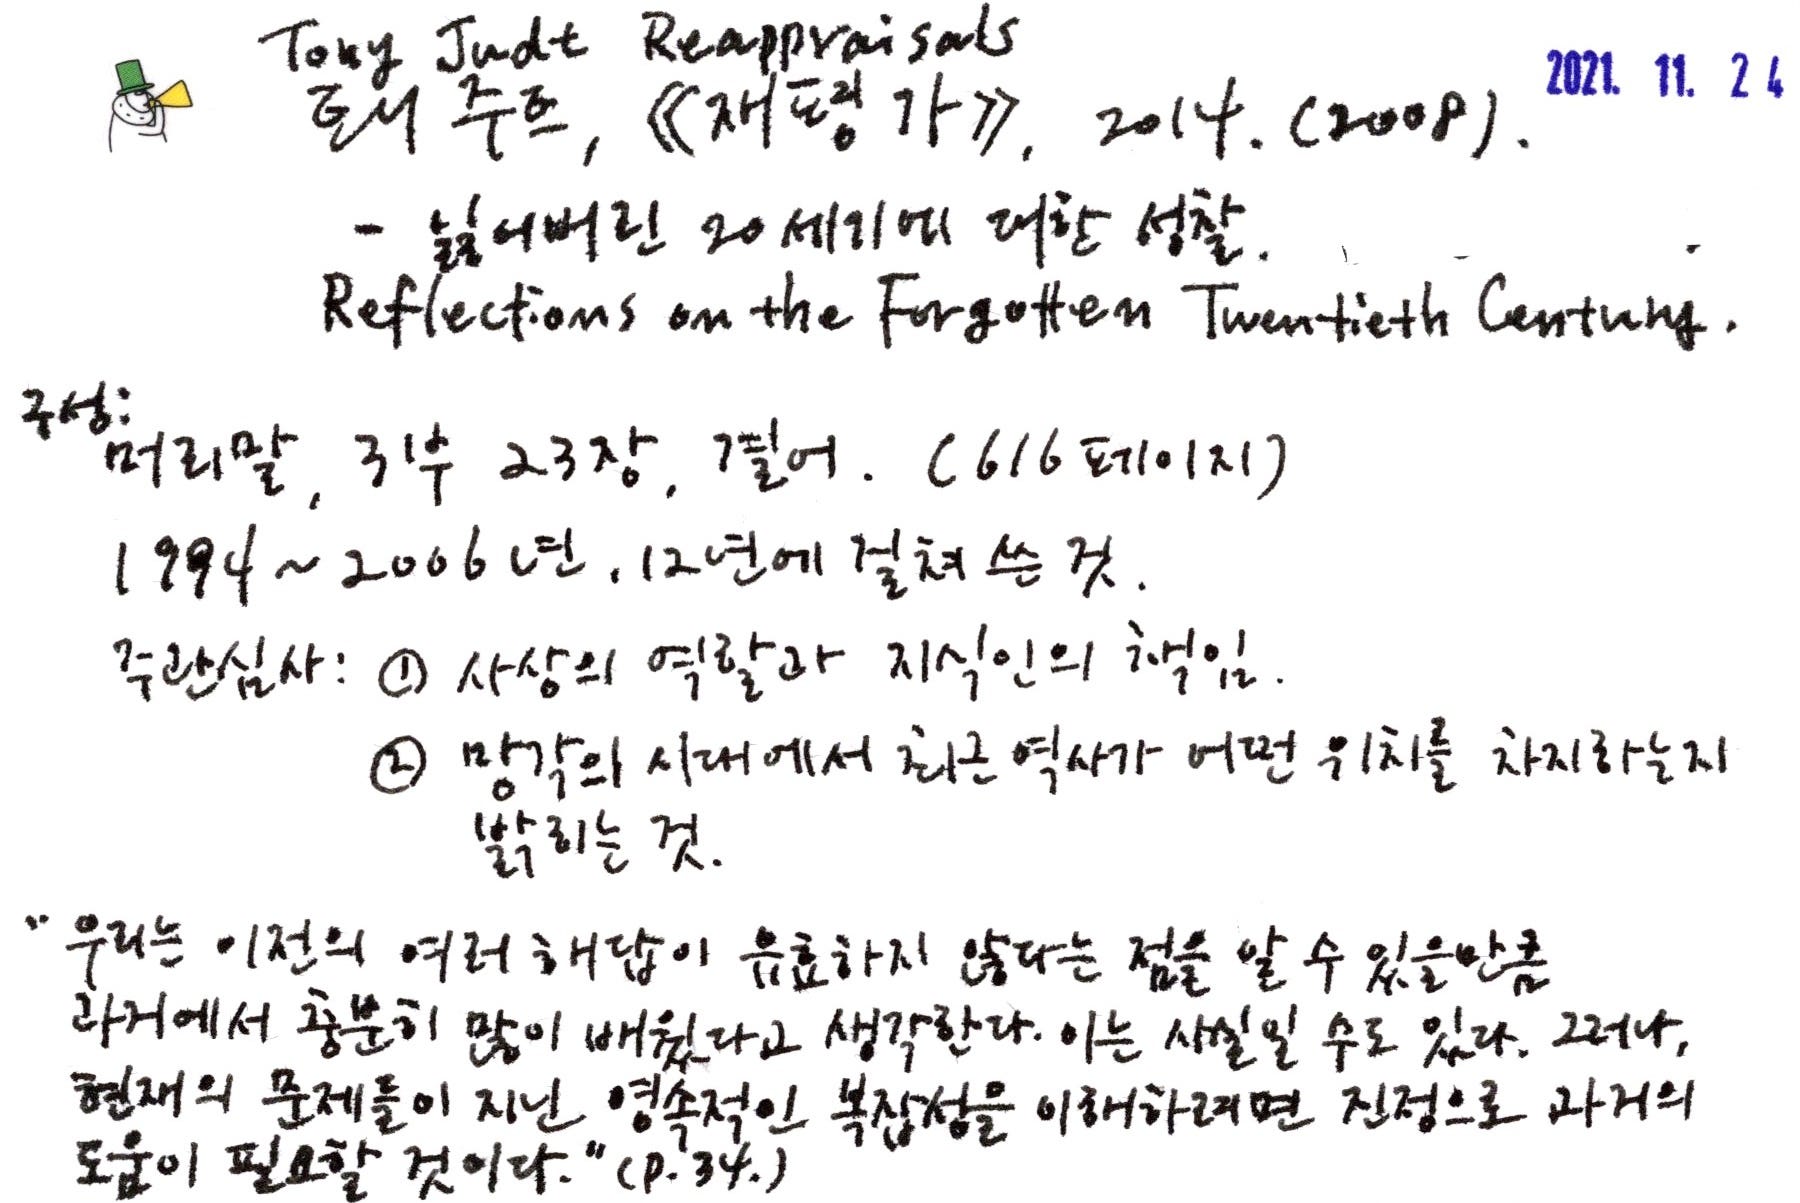 Tony Judt Reappraisals
2021. 11. 24
토니 주트, 《재평가》, 2014. (2008).
- 잃어버린 20세기에 대한 성찰.
Reflections on the Forgotten Twentieth Century.
구성:
머리말, 3부 23장, 결어. (616페이지)
1994~2006년, 12년에 걸쳐 쓴 것.
주관심사: ① 사상의 역할과 지식인의 책임.
② 망각의 시대에서 최근 역사가 어떤 위치를 차지하는지
밝히는 것.
"우리는 이전의 여러 해답이 유효하지 않다는 점을 알 수 있을만큼
과거에서 충분히 많이 배웠다고 생각한다. 이는 사실일 수도 있다. 그러나,
현재의 문제들이 지닌 영속적인 복잡성을 이해하려면 진정으로 과거의
도움이 필요할 것이다." (p. 34.)